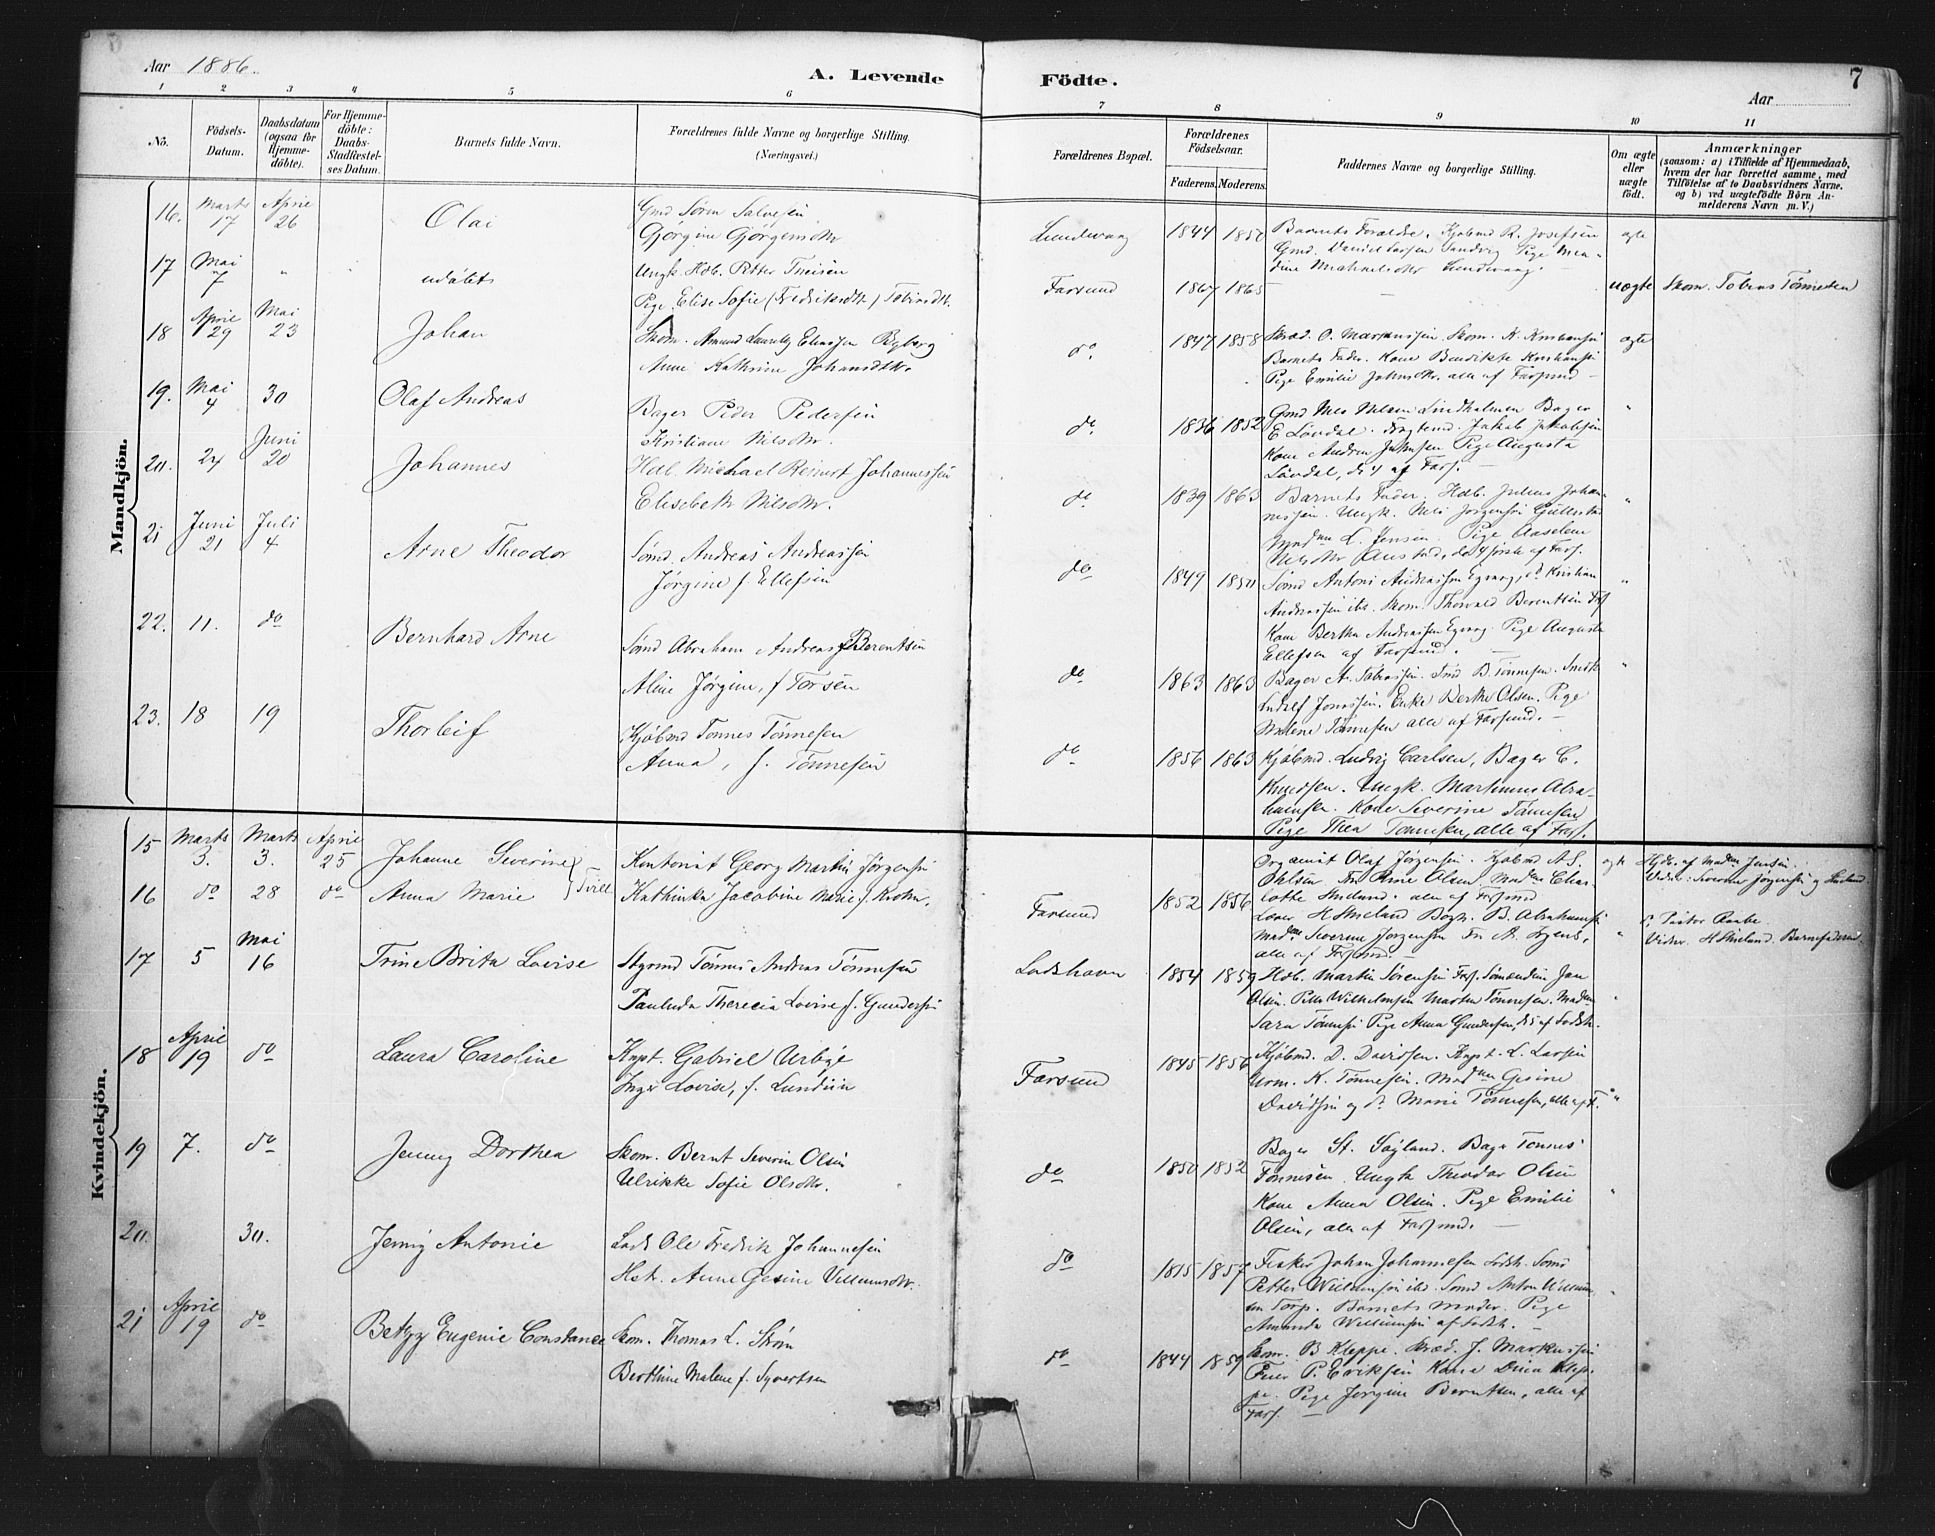 Aar 1886.
A. Levende Födte.
7
Aar
1 2 3 4 5 6 7 8 9 10 11
No.
Födsels-Datum.
Daabsdatum (ogsaa for Hjemme-döbte).
For Hjemme-döbte: Daabs-Stadfæstel-ses Datum.
Barnets fulde Navn.
Forældrenes fulde Navne og borgerlige Stilling.
(Næringsvei.)
Forældrenes Bopæl.
Forældrenes Födselsaar.
Faderens. Moderens.
Faddernes Navne og borgerlige Stilling.
Om ægte eller uægte födt.
Anmærkninger
(saasom: a) i Tilfælde af Hjemmedaab,
hvem der har forrettet samme, med
Tilföielse af to Daabsvidners Navne.
og b) ved uægtefödte Börn An-
melderens Navn m. V.)
Mandkjön.
16. Marts 17 April 26 Olai
Gmd Søren Salvesen
Gjorgine Gjørgensdtr
Lundevaag 1844 1850
Barnets Forældre. Kjøbmd R. Josefsen
ægte
17 Mai 7 " udøbt
Ungk. Hdb. Petter Theisen
Pige Elise Sofie (Fredriksdtr) Tobiasdtr.
Farsund 1867 1865 — — uægte Skom. Tobias Tönnesen
18 April 29 Mai 23 Johan
Skom. Amund Lauritz Eliassen Ryberg
Anne Kathrine Johansdtr.
do 1847 1858
Barnets Fader. Kone Bendikte Kristiansen
Pige Emilie Johnsdtr. alle af Farsund —
ægte
19. Mai 4 30 Olaf Andreas
Bager Peder Pedersen
Kristiane Nilsdtr.
do 1836 1852
Gmd Nils Nilsen Lindholmen Bager
E Løvdal. Fogtemd. Jakob Jakobsen
Pige Augusta
Løvdal, de 4 af Fars. —
"
20. 24 Juni 20 Johannes
Hdb Michael Reinert Johannessen
Elisebeth Nilsdtr.
do 1839 1863
Barnets Fader. Hdb. Julius Johan-
nessen. Ungk. Nils Jørgensen
L. Jensen. Pige Aaselene
Nilsdtr
"
21 Juni 21 Juli 4 Arne Theodor
Sømd. Andreas Andreassen
Jørgine f. Ellefsen
do 1849 1850
Sømd Antoni Andreassen Egvaag, do Kristian
Andreassen ibd. Skom. Thorvald Berentsen Fars
Kone Bertha Andreassen Egvaag. Pige Augusta
Ellefsen af Farsund.
"
22. 11. do Bernhard Arne
Sømd Abraham Andreas Berentsen
Aline Jørgine, f Torsen
do 1863 1863
Bager A. Tobiassen. Smd B. Tønnesen. Smed
Jonassen. Enke Berthe Olsen. Pige
Malene Tønnesen alle af Farsund. —
"
23. 18 19 Thorleif
Kjøbmd Tønnes Tønnesen
Anna, f. Tønnesen
do 1856 1863
Kjøbmd. Ludvig Carlsen, Bager C.
Knudsen. Ungk. Martinius Abra-
hamsen. Kone Severine Tønnesen
Pige Thea Tønnesen, alle af Fars.
Kvindekjön.
15 Marts 3. Marts 3. April 25 Johanne Severine
16 do 28 do Anna Marie } Tvill
Kontorist Georg Martin Jørgensen
Kathinka Jacobine Marie f. Krohn.
Farsund 1852 1856
Organist Olaf Jørgensen. Kjøbmd A. S.
Ohlsen Fru Olsen Madme Char-
lotte Stieland. alle af Farsund
H Stieland Bogh. B. Abrahamsen
Madme Severine Jørgensen Fr A.
alle af Farsund. —
ægte
Hjdb. af Madme Jensen.
Vidner: Severine Jørgensen og Stieland.
do Pastor Raabe.
Vidner. H Stieland. Barnefaderen
17 5 Mai 16 Trine Brita Lovise
Stgmd Tønnes Andreas Tønnesen
Paulinda Therecia Lovise f. Gundersen
Lodshavn 1854 1859
Hdb. Martin Sørensen Fars. Sømændene Jan
Olsen. Petter Wilhelmsen Morten Tønnesen. Madme
Sara Tønnesen Pige Anna Gundersen, de 5 af Lodsh.
"
18 April 19 do Laura Caroline
Kapt. Gabriel Urbye
Inger Lovise, f. Lundein
Farsund 1845 1856
Kjøbmd. D. Davidsen. Kapt. L. Larsen
Urm. K. Tønnesen. Madme Gesine
Davidsen og do Marie Tønnesen, alle af F.
"
19 7. do Jenny Dorthea
Skom. Bernt Severin Olsen
Ulrikke Sofie Olsdtr.
do 1850 1852
Bager St. Sogland. Bager Tønnes
Tønnesen. Ungk Theodor Olsen
Kone Anna Olsen. Pige Emilie
Olsen, alle af Farsund. —
"
20. 30. Jenny Antonie
Lods Ole Fredrik Johannesen
Hst. Anne Gesine Villumsdtr.
do 1815 1857
Fisker Johan Johannesen Lodsh. Sømd
Petter Williumsen ibd. Sømd Anton Willium-
sen Torp. Barnets Moder. Pige
Amanda Williumsen af Lodsh. —
"
21 April 19 do Betzy Eugenie Constance
Skom. Thomas L. Strøm
Berthine Malene f. Syvertsen
do 1844 1859
Skom. B Kleppe. Skræd. J. Markussen
Feier P. Eriksen Kone Dina Klep-
pe. Pige Jørgine Berntsen, alle af
Fars. —